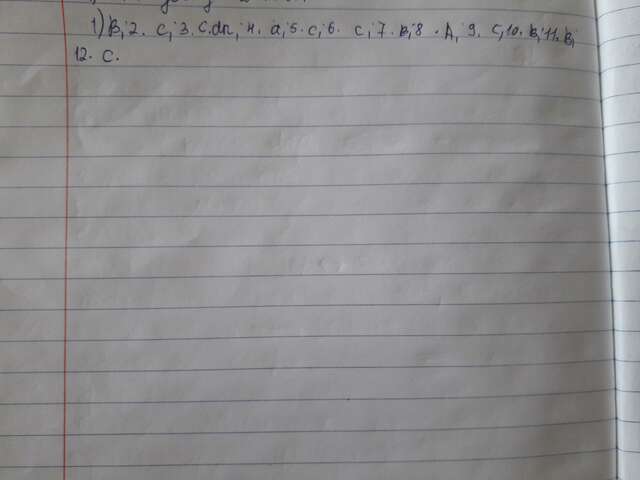 1) B, 2. c, 3. c.dn, 4. a, 5. c, 6. c, 7. B, 8. A, 9. c, 10. B, 11. B,
12. c.